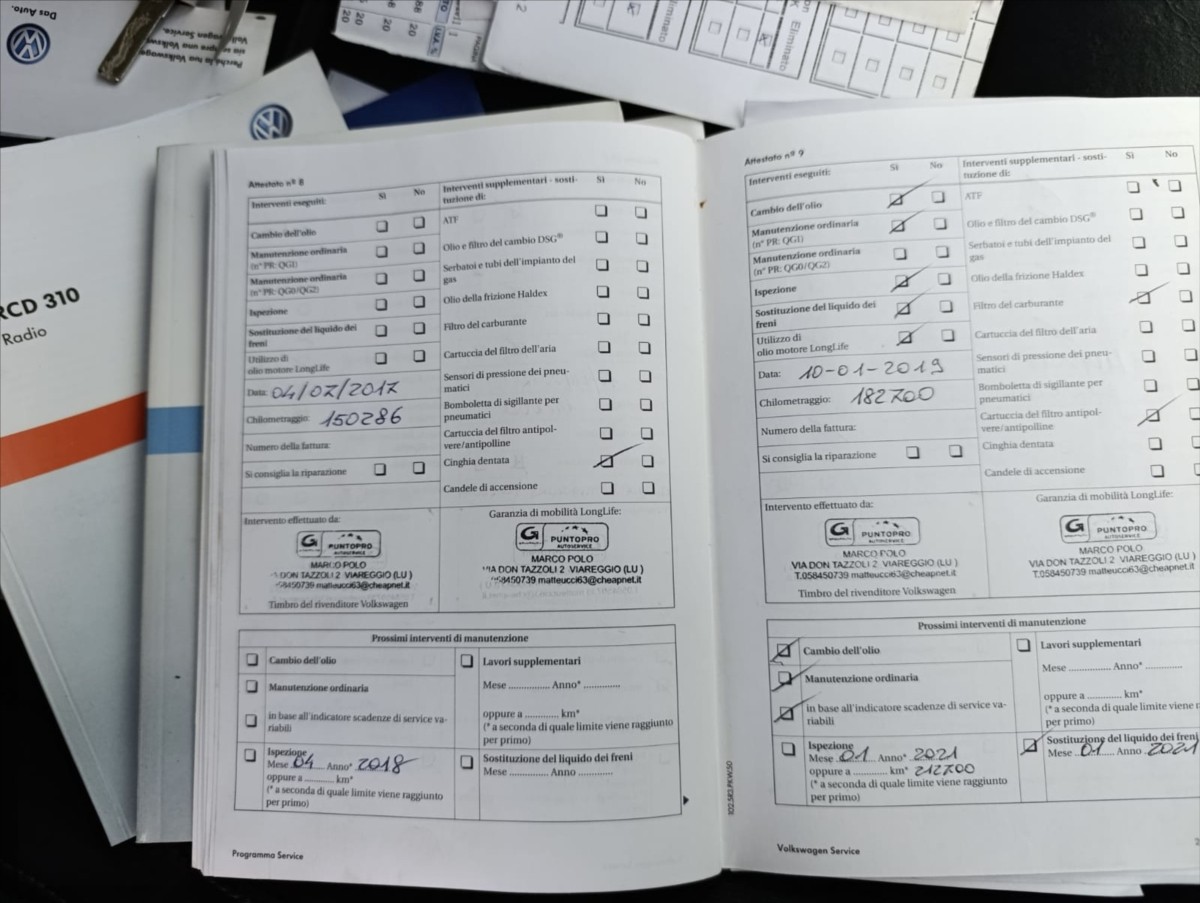 Das Auto.
Perché la tua Volkswagen
sia sempre una Volkswagen
Volkswagen Service.
Eliminato
RCD 310
Radio
Attestato nº 8
Interventi eseguiti:
Sì
No
Cambio dell'olio
Manutenzione ordinaria
(nº PR: QG1)
Manutenzione ordinaria
(nº PR: QG0/QG2)
Ispezione
Sostituzione del liquido dei
freni
Utilizzo di
olio motore LongLife
Data: 04/07/2017
Chilometraggio: 150286
Numero della fattura:
Si consiglia la riparazione
Interventi supplementari - sosti-
tuzione di:
Sì
No
ATF
Olio e filtro del cambio DSG®
Serbatoi e tubi dell'impianto del
gas
Olio della frizione Haldex
Filtro del carburante
Cartuccia del filtro dell'aria
Sensori di pressione dei pneu-
matici
Bomboletta di sigillante per
pneumatici
Cartuccia del filtro antipol-
vere/antipolline
Cinghia dentata
Candele di accensione
Intervento effettuato da:
G PUNTOPRO
AUTOSERVICE
MARCO POLO
DON TAZZOLI 2 VIAREGGIO (LU )
58450739 matteucci63@cheapnet.it
Timbro del rivenditore Volkswagen
Garanzia di mobilità LongLife:
G PUNTOPRO
AUTOSERVICE
MARCO POLO
VIA DON TAZZOLI 2 VIAREGGIO (LU )
058450739 matteucci63@cheapnet.it
Prossimi interventi di manutenzione
Cambio dell'olio
Manutenzione ordinaria
in base all'indicatore scadenze di service va-
riabili
Ispezione
Mese 04 Anno* 2018
oppure a ............ km*
(* a seconda di quale limite viene raggiunto
per primo)
Lavori supplementari
Mese ............ Anno* ............
oppure a ............ km*
(* a seconda di quale limite viene raggiunto
per primo)
Sostituzione del liquido dei freni
Mese ............ Anno ............
Programma Service
Attestato nº 9
Interventi eseguiti:
Sì
No
Cambio dell'olio
Manutenzione ordinaria
(nº PR: QG1)
Manutenzione ordinaria
(nº PR: QG0/QG2)
Ispezione
Sostituzione del liquido dei
freni
Utilizzo di
olio motore LongLife
Data: 10-01-2019
Chilometraggio: 182700
Numero della fattura:
Si consiglia la riparazione
Interventi supplementari - sosti-
tuzione di:
Sì
No
ATF
Olio e filtro del cambio DSG®
Serbatoi e tubi dell'impianto del
gas
Olio della frizione Haldex
Filtro del carburante
Cartuccia del filtro dell'aria
Sensori di pressione dei pneu-
matici
Bomboletta di sigillante per
pneumatici
Cartuccia del filtro antipol-
vere/antipolline
Cinghia dentata
Candele di accensione
Intervento effettuato da:
G PUNTOPRO
AUTOSERVICE
MARCO POLO
VIA DON TAZZOLI 2 VIAREGGIO (LU )
T.058450739 matteucci63@cheapnet.it
Timbro del rivenditore Volkswagen
Garanzia di mobilità LongLife:
G PUNTOPRO
AUTOSERVICE
MARCO POLO
VIA DON TAZZOLI 2 VIAREGGIO (LU )
T.058450739 matteucci63@cheapnet.it
Prossimi interventi di manutenzione
Cambio dell'olio
Manutenzione ordinaria
in base all'indicatore scadenze di service va-
riabili
Ispezione
Mese 01 Anno* 2021
oppure a ............ km* 212700
(* a seconda di quale limite viene raggiunto
per primo)
Lavori supplementari
Mese ............ Anno* ............
oppure a ............ km*
(* a seconda di quale limite viene
per primo)
Sostituzione del liquido dei freni
Mese 01 Anno 2021
102.5R2.PKW.50
Volkswagen Service